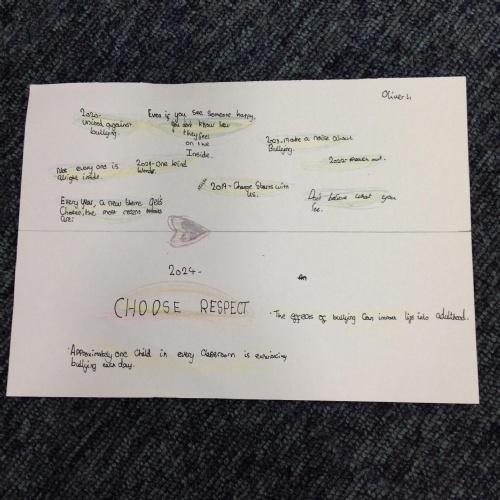 Oliver H
2020-
United against
bullying.
Even if you see someone happy,
you don't know how
they feel
on the
Inside.
2023-make a noise about
Bullying.
2022-reach out.
Not every one is
alright inside.
2021-One kind
Words.
2019-Change Starts with
Us.
Don't believe what you
See.
Every Year, a new theme gets
Chosen, the most recent
are:
2024-
CHOOSE RESPECT
·The effects of bullying can involve life into adulthood.
·Approximately one child in every classroom is experiencing
bullying each day.